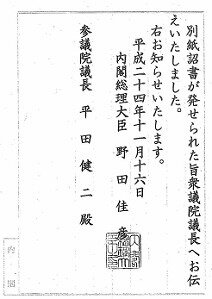 別紙詔書が発せられた旨衆議院議長へお伝
えいたしました。
右お知らせいたします。
平成二十四年十一月十六日
内閣総理大臣 野田佳彦
参議院議長 平田健二殿
内閣